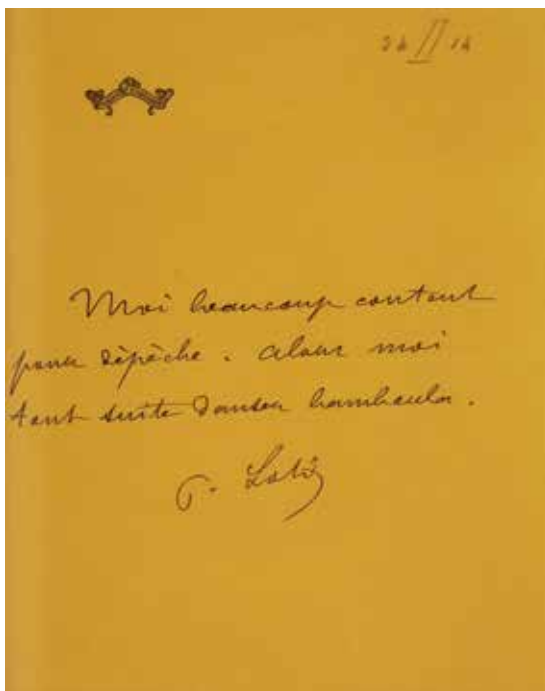 24 II 14
Moi beaucoup content
pour dépêche. Alors moi
tout suite danser bamboula.
P. Loti